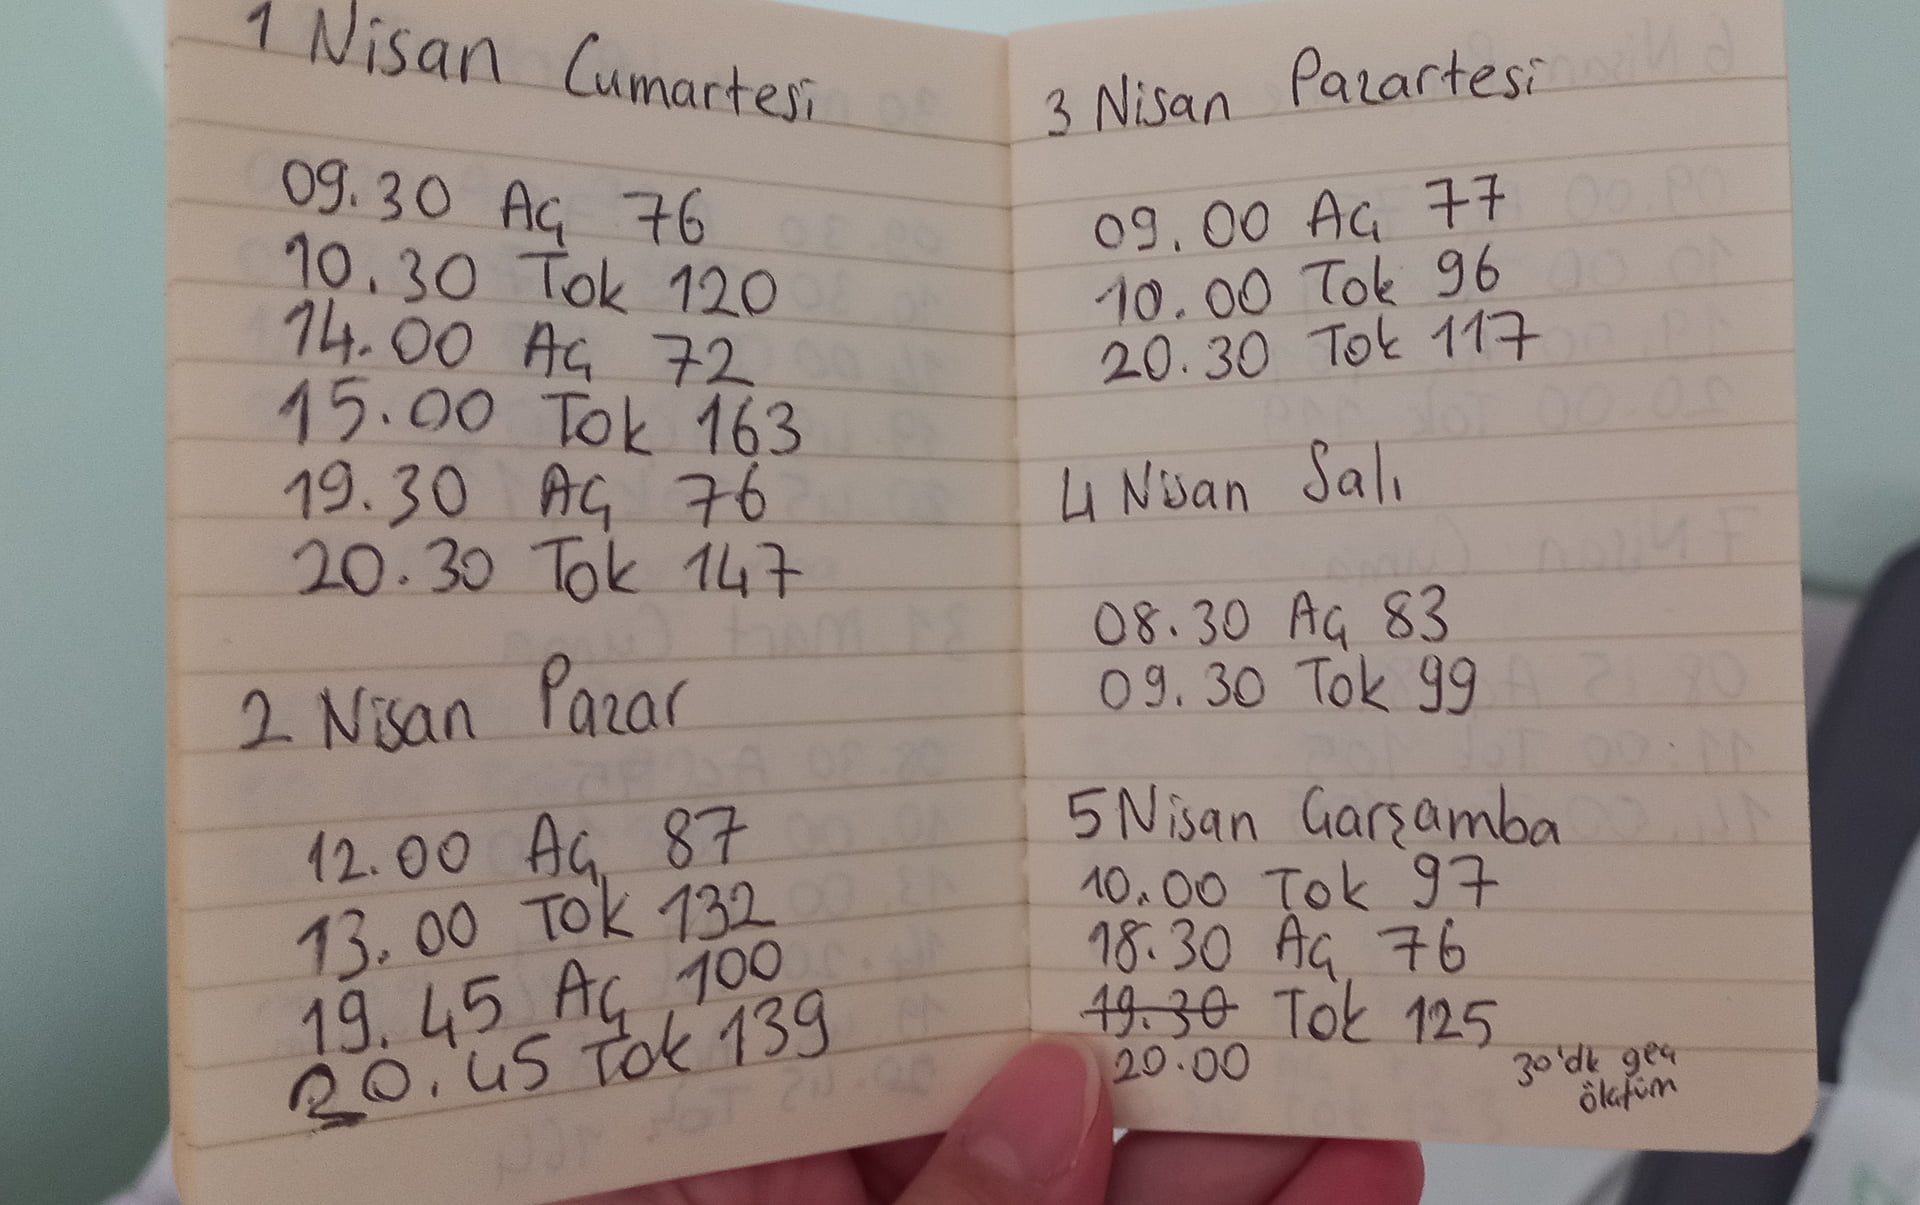 1 Nisan Cumartesi
09.30 Aç 76
10.30 Tok 120
14.00 Aç 72
15.00 Tok 163
19.30 Aç 76
20.30 Tok 147
2 Nisan Pazar
12.00 Aç 87
13.00 Tok 132
19.45 Aç 100
20.45 Tok 139
3 Nisan Pazartesi
09.00 Aç 77
10.00 Tok 96
20.30 Tok 117
4 Nisan Salı
08.30 Aç 83
09.30 Tok 99
5 Nisan Çarşamba
10.00 Tok 97
18.30 Aç 76
19.30 Tok 125
20.00
30'dk geç
ölçtüm